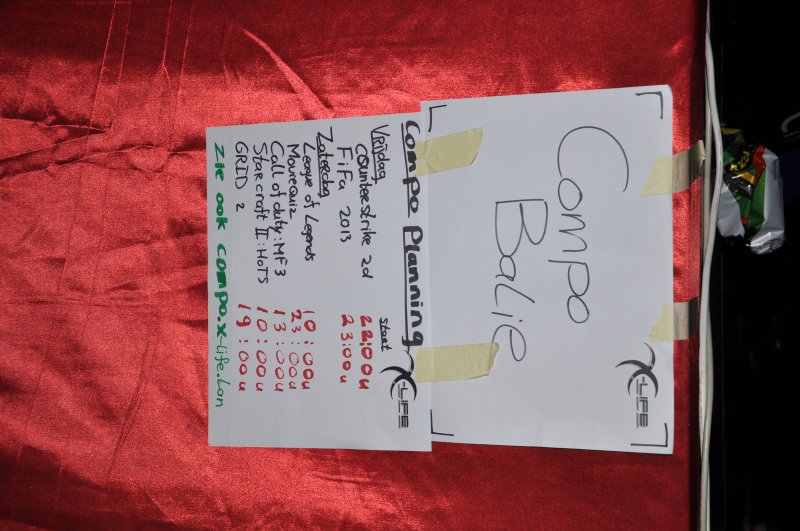 Compo
Balie
X-LIFE
Compo Planning
start
X-LIFE
Vrijdag
Counterstrike 2d 22:00u
FiFa 2013 23:00u
Zaterdag
League of Legends 10:00u
Moviequiz 23:00u
Call of duty:MF3 13:00u
Starcraft II:HoTS 10:00u
GRID 2 19:00u
Zie ook compo.x-life.lan